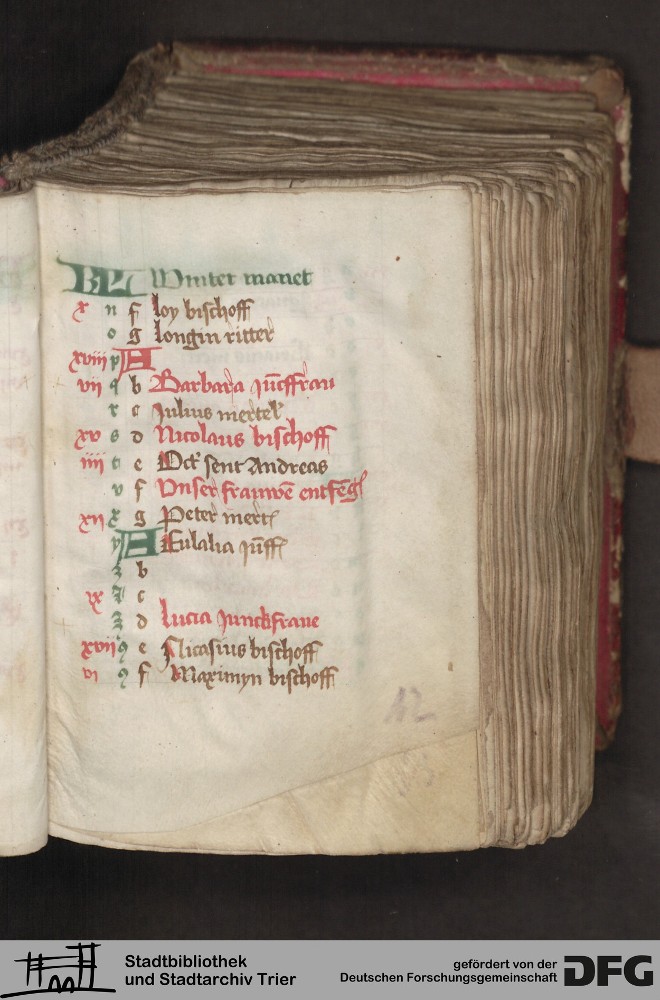 KL Winter manet
x n f loy bischoff
o g longin ritter
xviii p A
vii q b Barbara jũcffrau
r c Julius merteľ
xv s d Nicolaus bischoff
iiii t e Oct' sent Andreas
v f Unser frauwē entfēg
xii x g Peter mert
y A Eulalia jũff
z b
xx c
d Lucia junckfrave
xvii 9 e Nicasius bischoff
vi f Maximyn bischoff
12
Stadtbibliothek
und Stadtarchiv Trier
gefördert von der
Deutschen Forschungsgemeinschaft
DFG